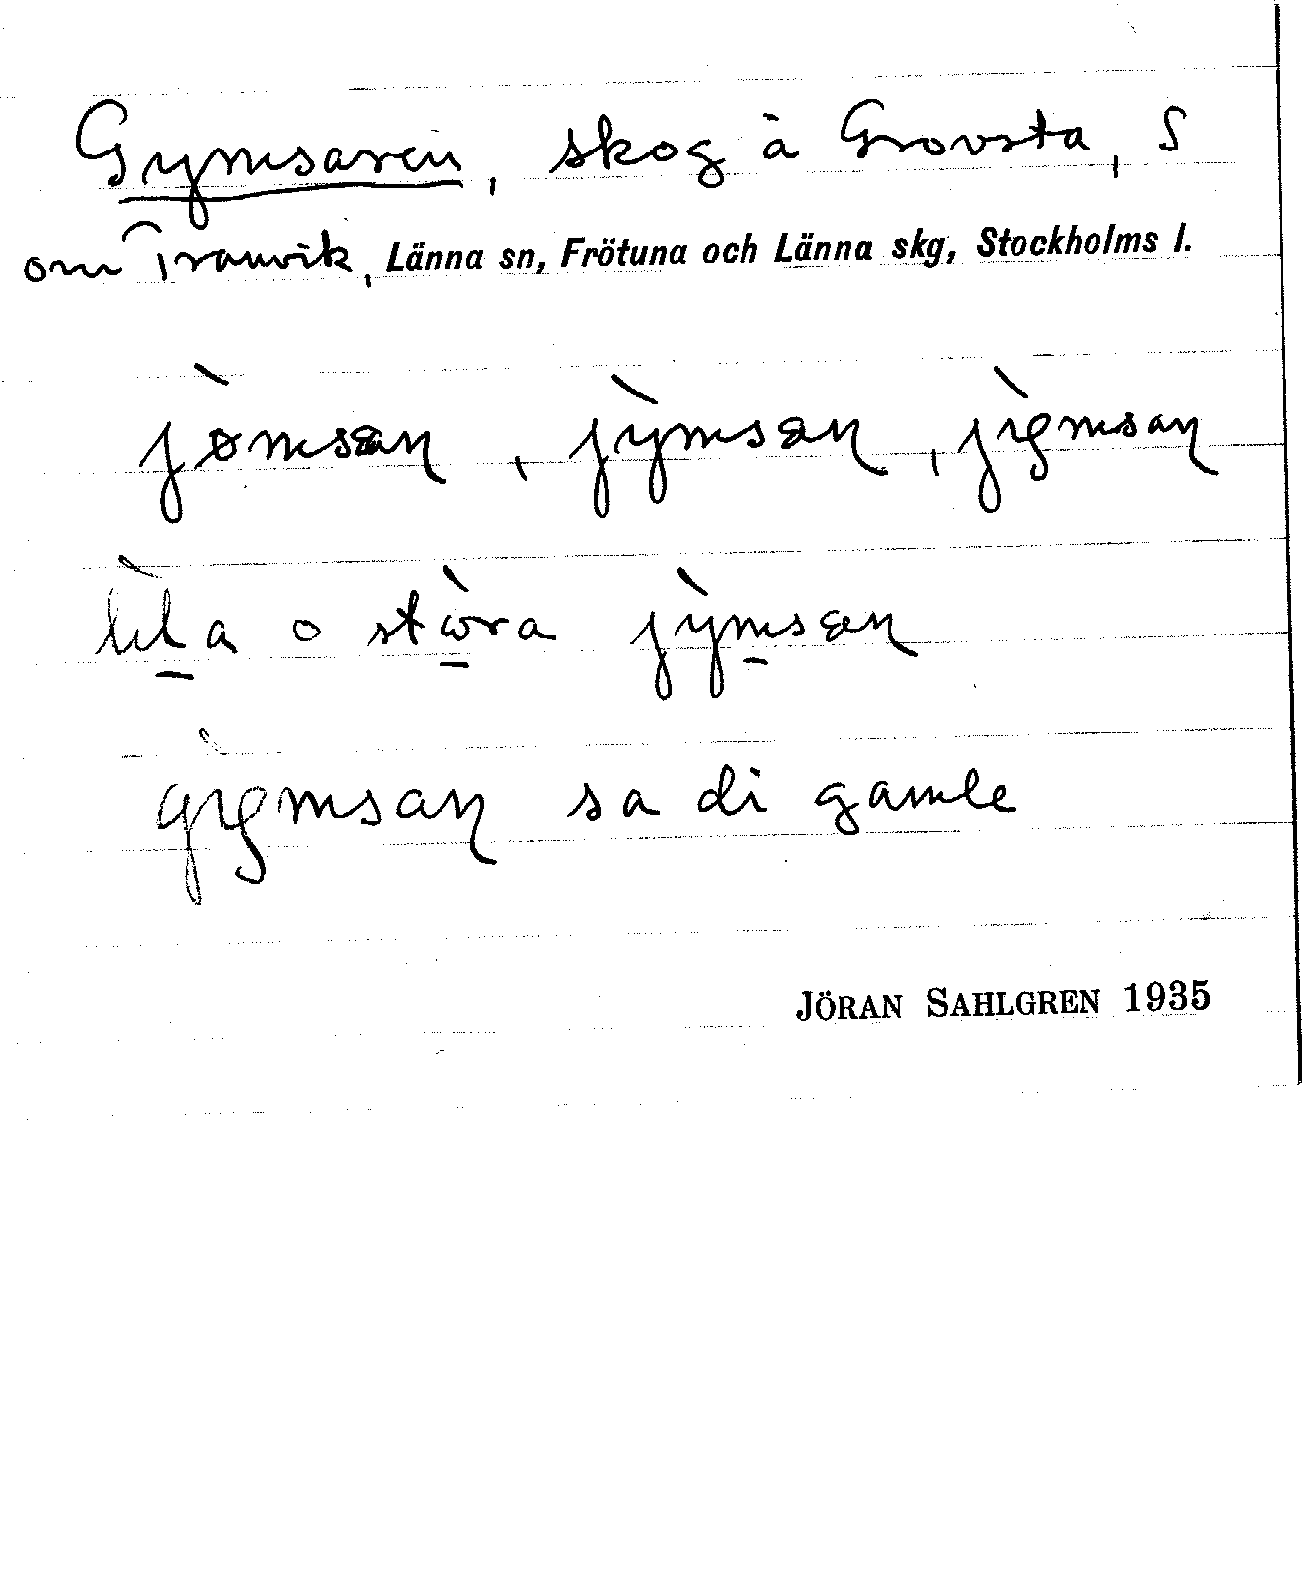 Gymsaren, skog å Grovsta, S
om Tranvik, Länna sn, Frötuna och Länna skg, Stockholms l.
jø̀msaɳ, jỳmsaɳ, jìgmsaɳ
lìla o stòra jỳmsaɳ
gìgmsaɳ sa di gamle
JÖRAN SAHLGREN 1935